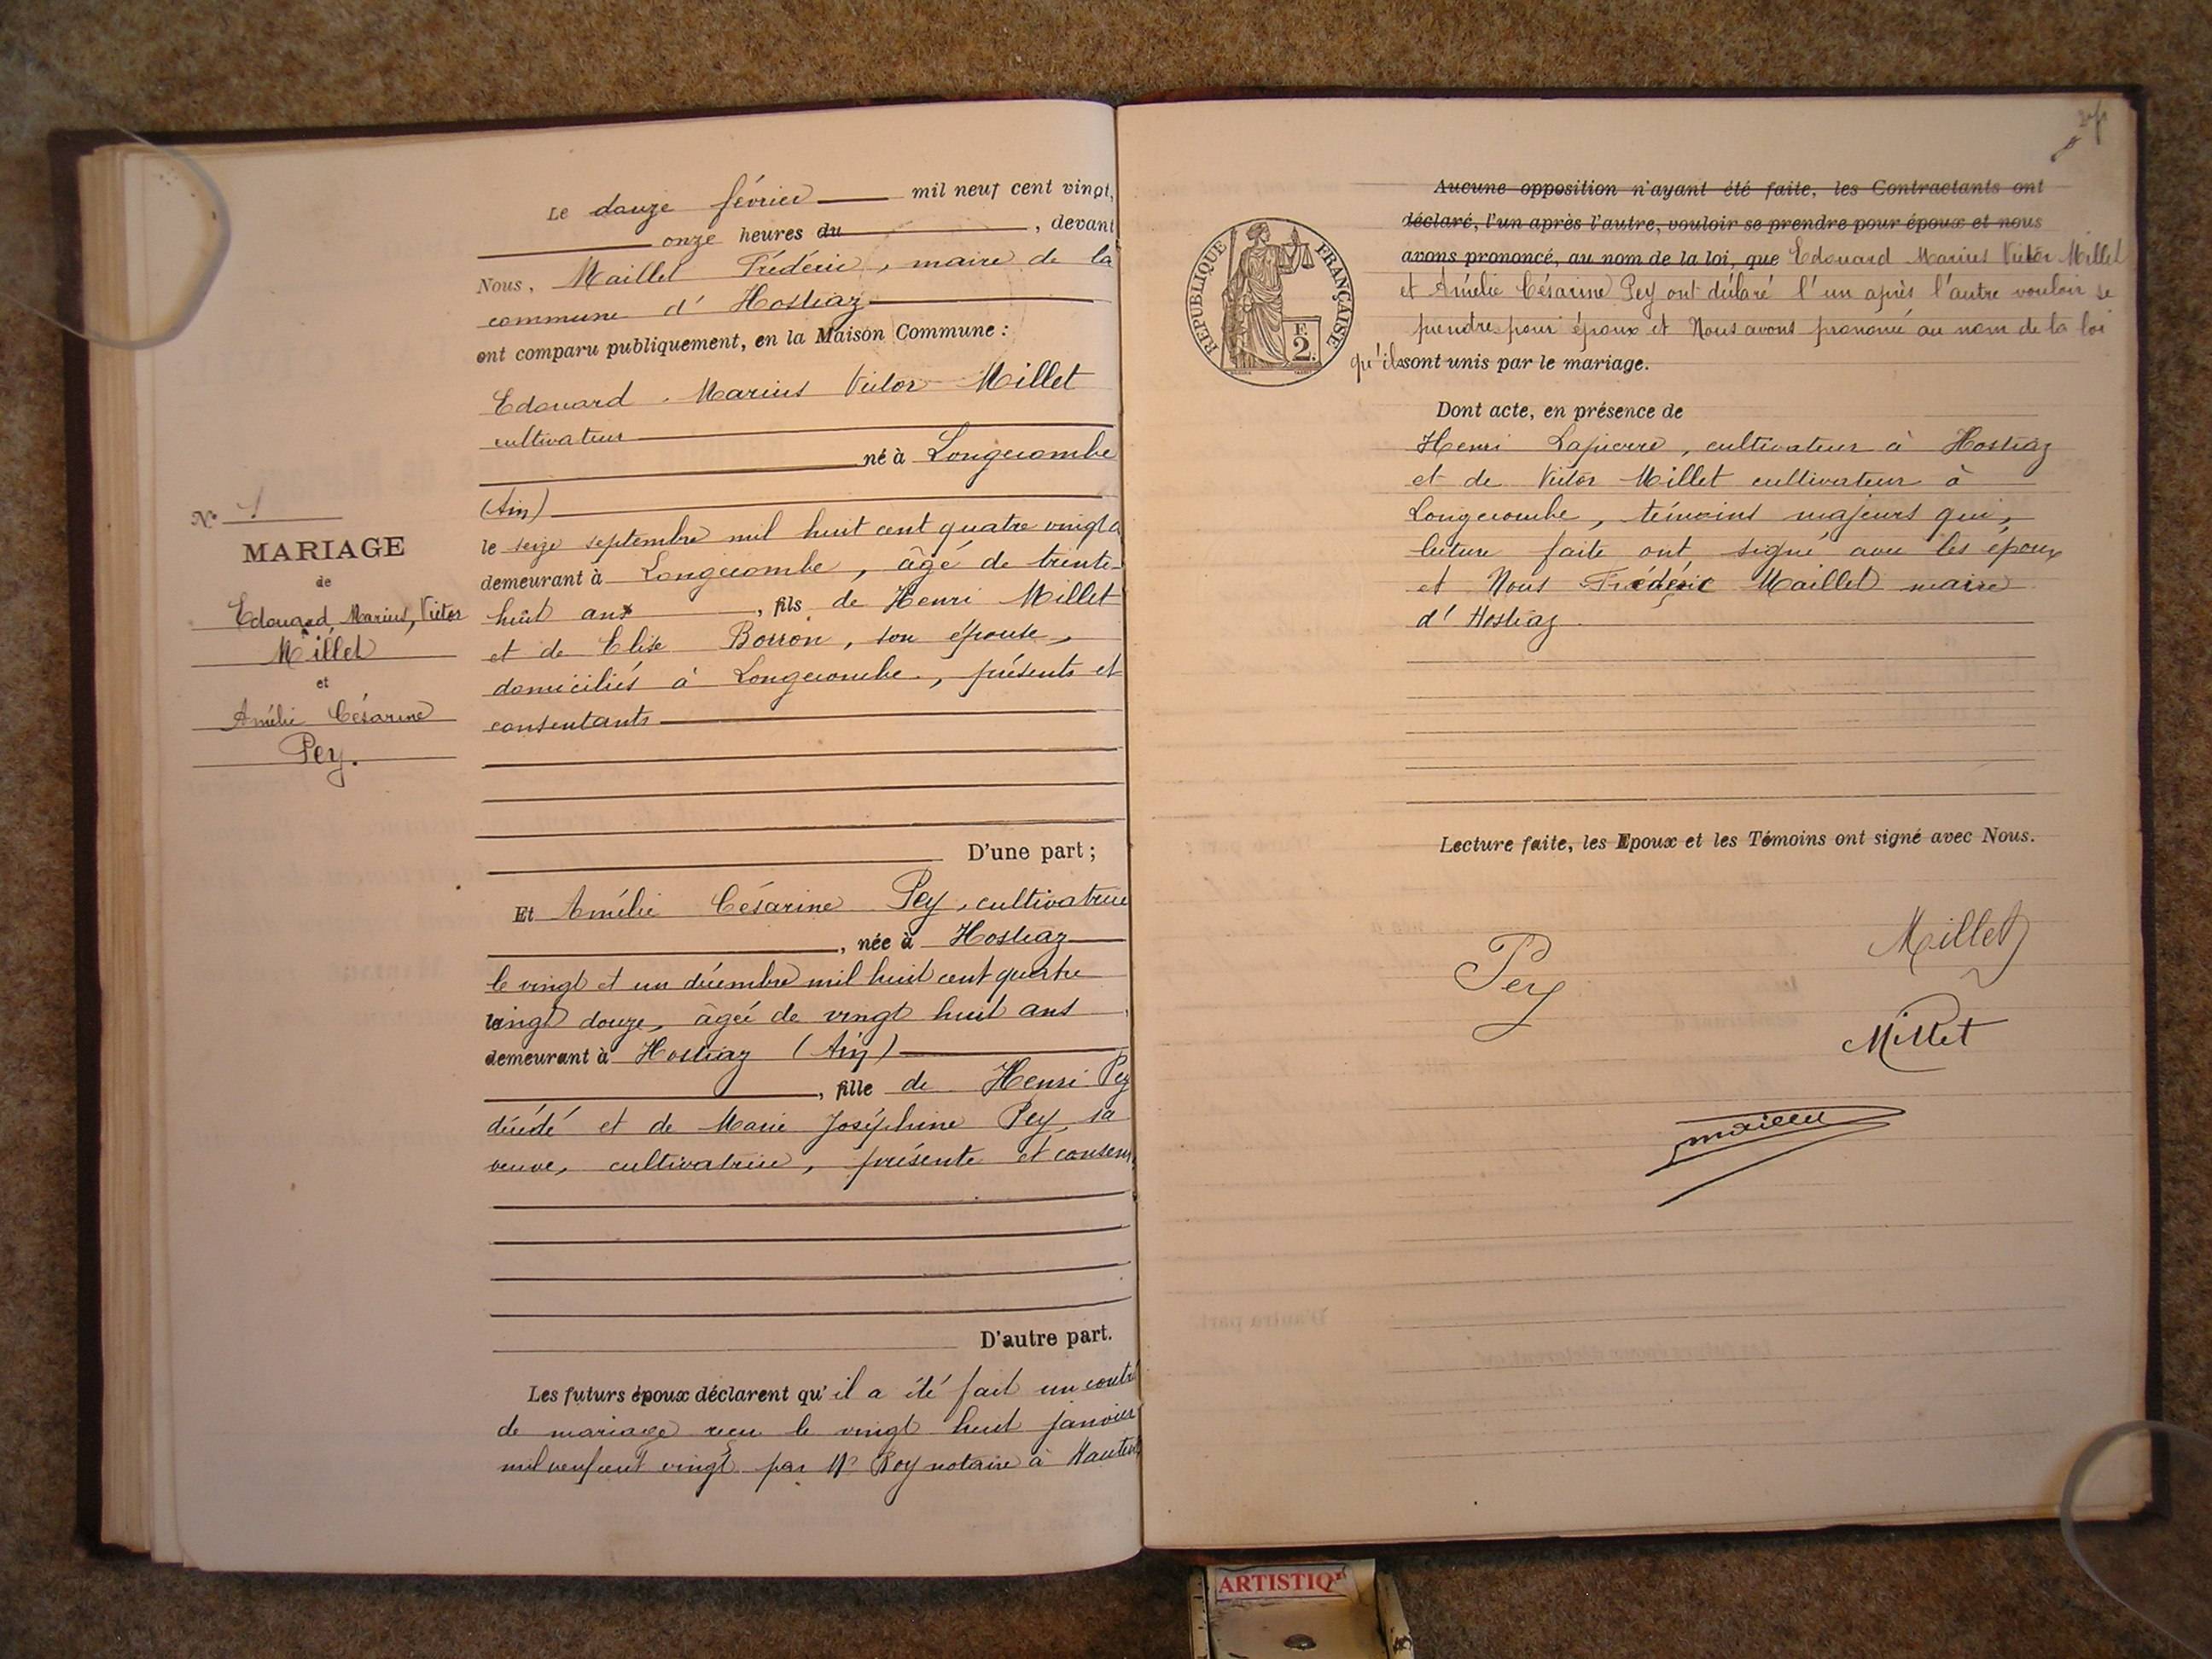 Le douze février mil neuf cent vingt,
onze heures du , devant
Nous, Maillet Frédéric, maire de la
commune d' Hostiaz
ont comparu publiquement, en la Maison Commune :
Edouard Marius Victor Millet
cultivateur
né à Longecombe
(Ain)
le seize septembre mil huit cent quatre vingt
demeurant à Longecombe, âgé de trente-
huit ans , fils de Henri Millet
et de Elise Borron, son épouse,
domiciliés à Longecombe, présents et
consentants
N° 1
MARIAGE
de
Edouard, Marius, Victor
Millet
et
Amélie Césarine
Pey.
D'une part ;
Et Amélie Césarine Pey, cultivatrice
, née à Hostiaz
le vingt et un décembre mil huit cent quatre
vingt douze, âgée de vingt huit ans
demeurant à Hostiaz (Ain)
, fille de Henri Pey
décédé et de Marie Joséphine Pey, sa
veuve, cultivatrice, présente et consen
D'autre part.
Les futurs époux déclarent qu'il a été fait un contr
de mariage reçu le vingt huit janvier
mil neuf cent vingt par Me Roy notaire à Hautev
RÉPUBLIQUE FRANÇAISE
F.
2.
Aucune opposition n'ayant été faite, les Contractants ont
déclaré, l'un après l'autre, vouloir se prendre pour époux et nous
avons prononcé, au nom de la loi, que Edouard Marius Victor Millet
et Amélie Césarine Pey ont déclaré l'un après l'autre vouloir se
prendre pour époux et Nous avons prononcé au nom de la loi
qu'ils sont unis par le mariage.
Dont acte, en présence de
Henri Lapierre, cultivateur à Hostiaz
et de Victor Millet cultivateur à
Longecombe, témoins majeurs qui,
lecture faite ont signé avec les époux
et Nous Frédéric Maillet maire
d' Hostiaz
Lecture faite, les Epoux et les Témoins ont signé avec Nous.
Millet
Pey
Millet
Maillet
ARTISTIQ